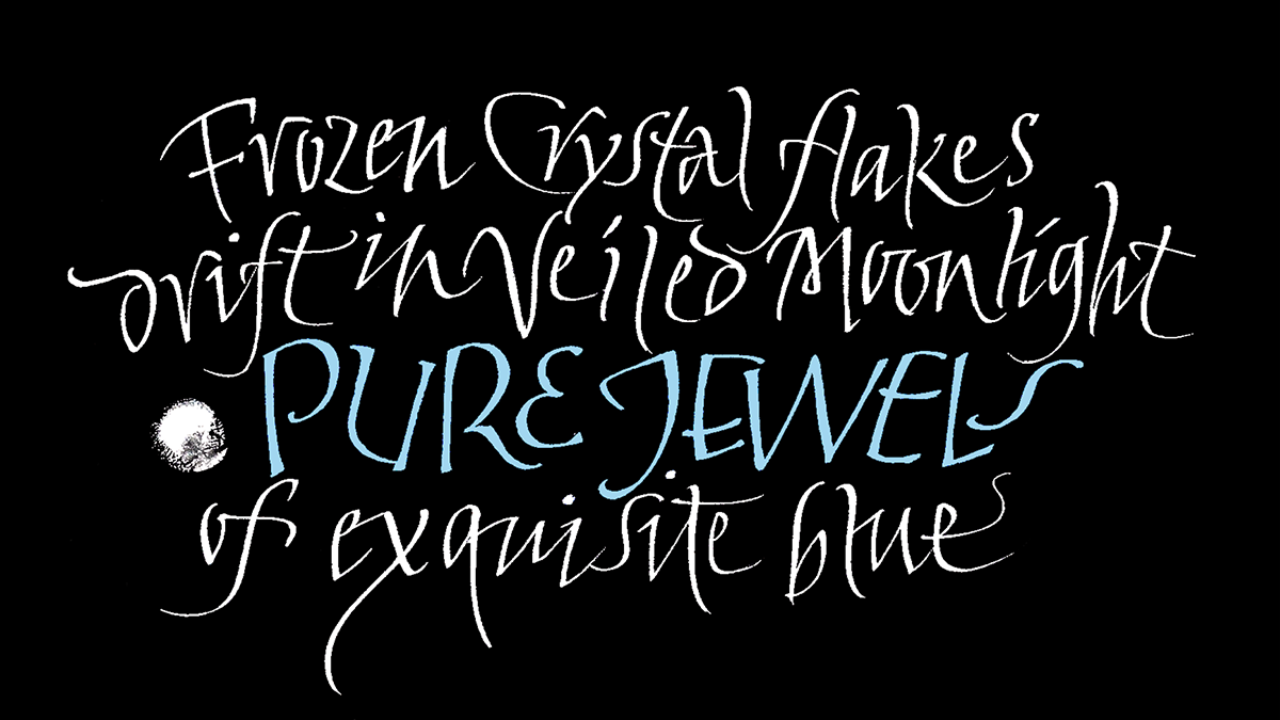 Frozen Crystal flakes
drift in Veiled Moonlight
PURE JEWELS
of exquisite blue